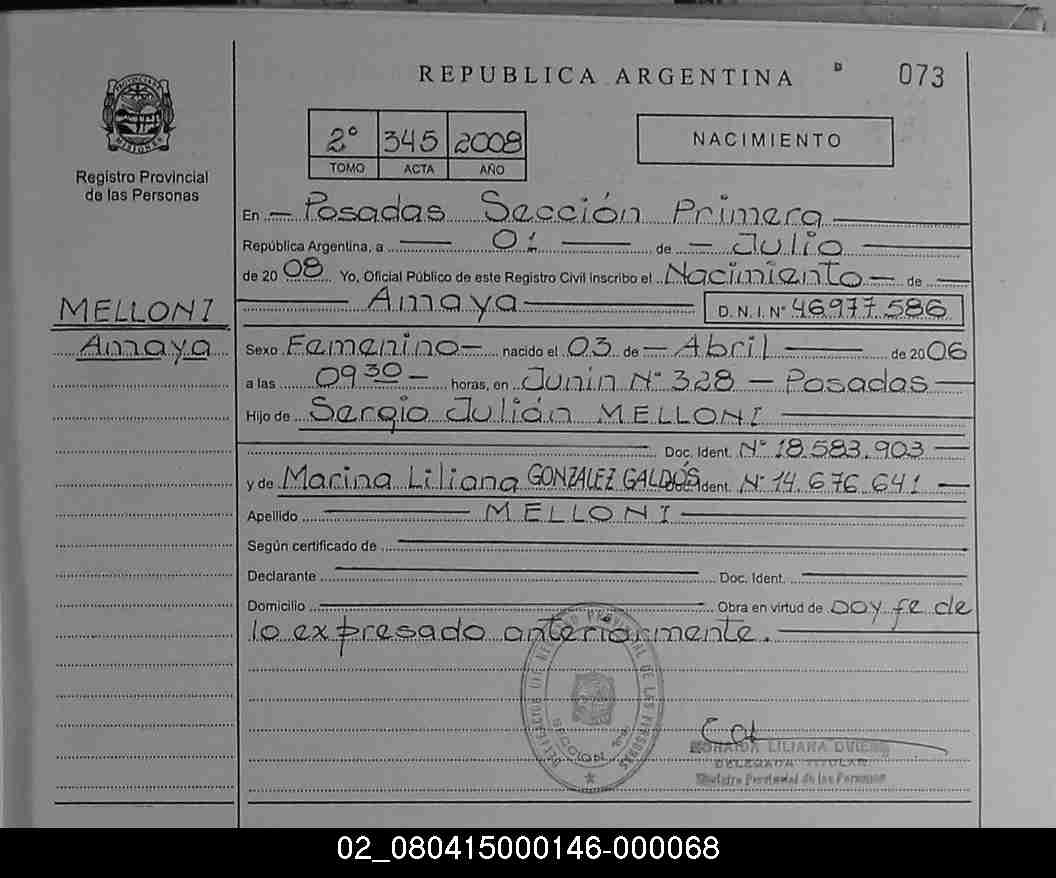 REPUBLICA ARGENTINA D 073
PROVINCIA DE MISIONES
Registro Provincial
de las Personas
2° 345 2008
TOMO ACTA AÑO
NACIMIENTO
En Posadas Sección Primera
República Argentina, a 01 de Julio
de 2008 Yo, Oficial Público de este Registro Civil inscribo el Nacimiento de
MELLONI
Amaya
Amaya D.N.I. N° 46.977.586
Sexo Femenino nacido el 03 de Abril de 2006
a las 09 30 horas, en Junin N° 328 - Posadas
Hijo de Sergio Julián MELLONI
Doc. Ident. N° 18.583.903
y de Marina Liliana GONZALEZ GALDÓS Doc. Ident. N° 14.676.641
Apellido MELLONI
Según certificado de
Declarante Doc. Ident.
Domicilio Obra en virtud de Doy fe de
lo expresado anteriormente.
REGISTRO PROVINCIAL DE LAS PERSONAS
SECCION
LILIANA
DELEGADA TITULAR
Registro Provincial de las Personas
02_080415000146-000068